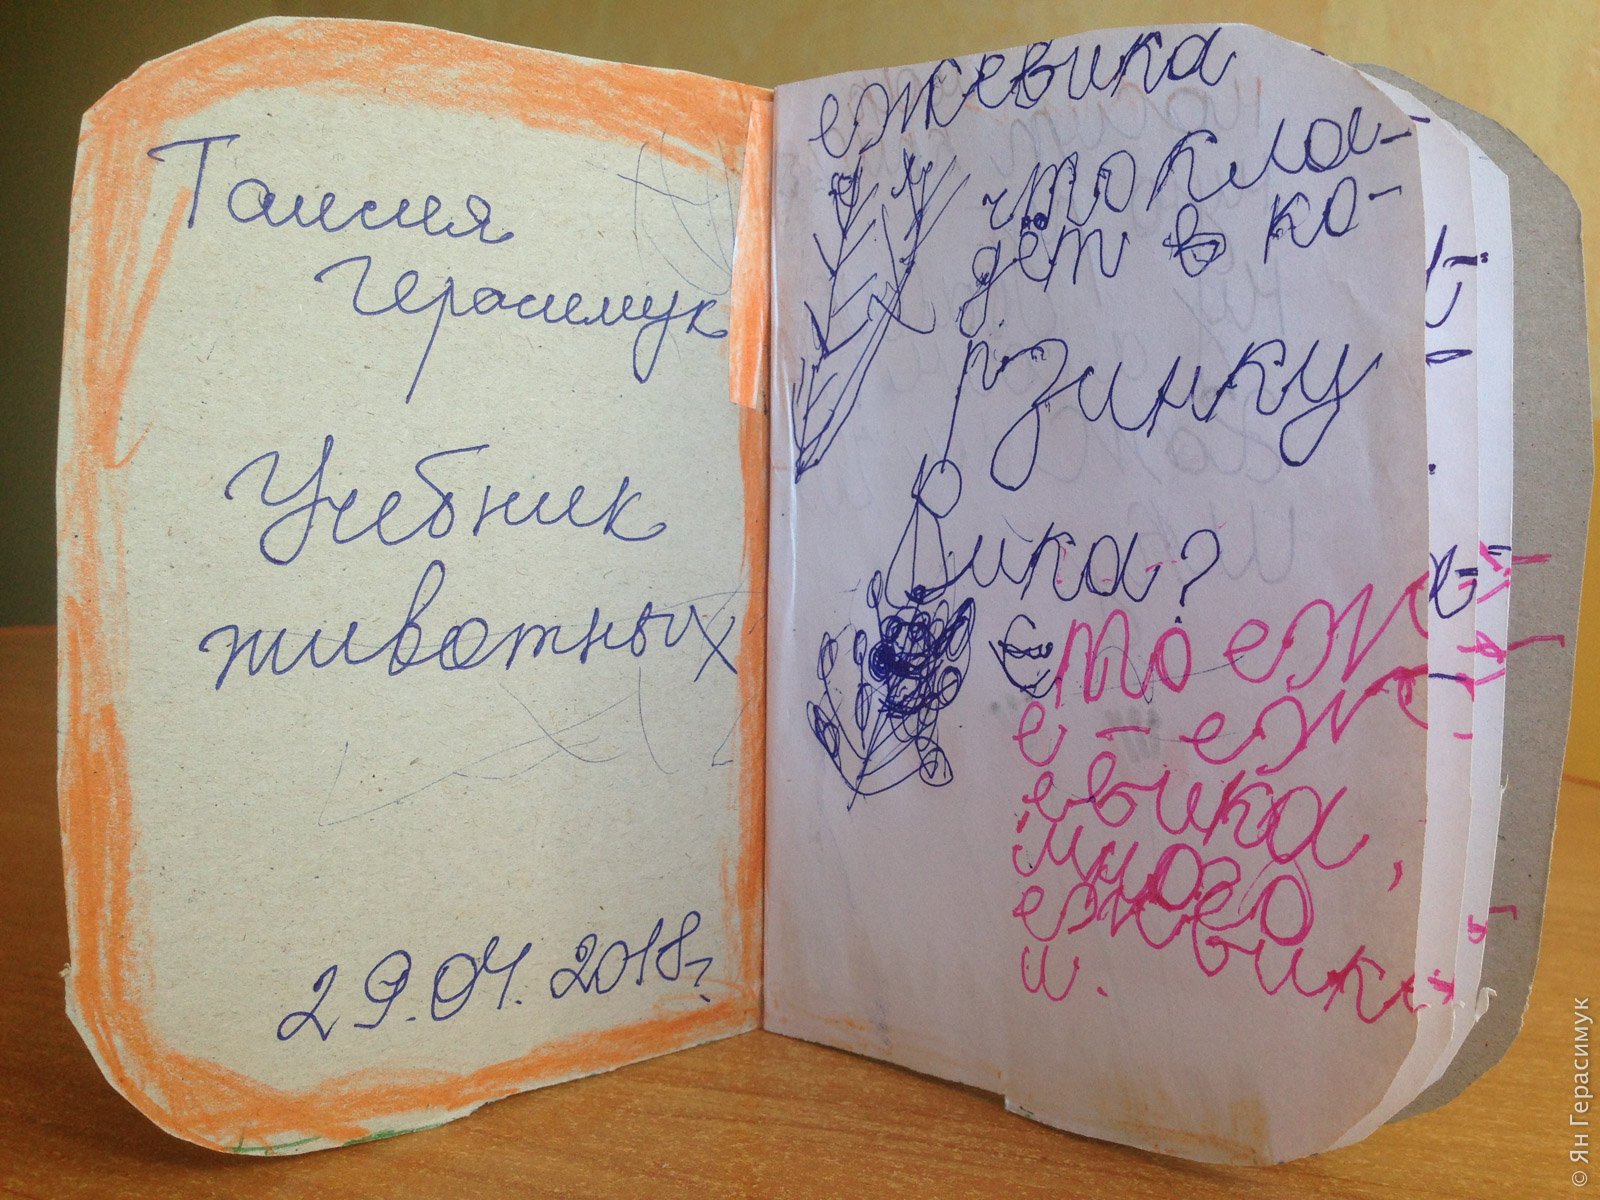 Таисия
Герасимук
Учебник
животных
29.04.2018г.
ежевика
что кла-
дёт в ко-
рзинку
Вика?
Это еж
е-еже
евика,
много
ежевик
и.
© Ян Герасимук